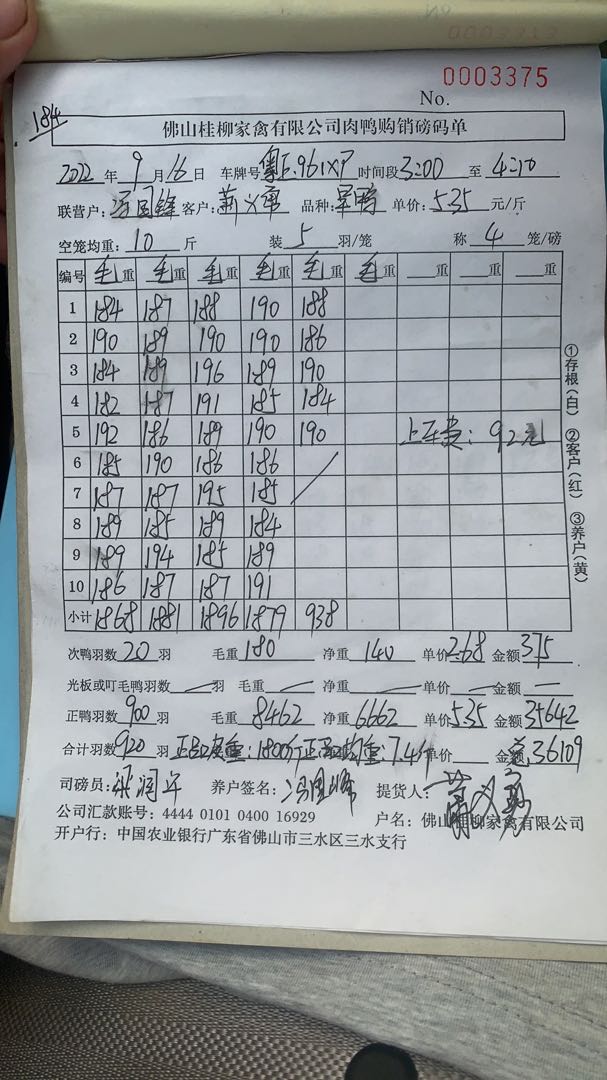 0003313
0003375
No.
184
佛山桂柳家禽有限公司肉鸭购销磅码单
2022 年 9 月 16 日 车牌号 粤E:961XP 时间段 3:00 至 4:10
联营户: 冯国锋 客户: 品种: 单价: 5.35 元/斤
空笼均重: 10 斤 装 5 羽/笼 称 4 笼/磅
编号 毛重 毛重 毛重 毛重 毛重 毛重 重 重 重
1 184 187 188 190 188
2 190 189 190 190 186
3 184 189 196 189 190
4 182 187 191 185 184
5 192 186 189 190 190 上车费: 92元
6 185 190 186 186
7 187 187 195 185
8 189 185 189 184
9 189 194 185 189
10 186 187 187 191
小计 1868 1881 1896 1879 938
①存根(白) ②客户(红) ③养户(黄)
次鸭羽数 20 羽 毛重 180 净重 140 单价 2.68 金额 375
光板或叮毛鸭羽数 羽 毛重 净重 单价 金额
正鸭羽数 900 羽 毛重 8462 净重 6662 单价 5.35 金额 35642
合计羽数 920 羽 正品皮重: 1800斤 正品均重: 7.4斤 单价 金额 36109
司磅员: 梁润平 养户签名: 提货人:
公司汇款账号: 4444 0101 0400 16929 户名: 佛山桂柳家禽有限公司
开户行: 中国农业银行广东省佛山市三水区三水支行